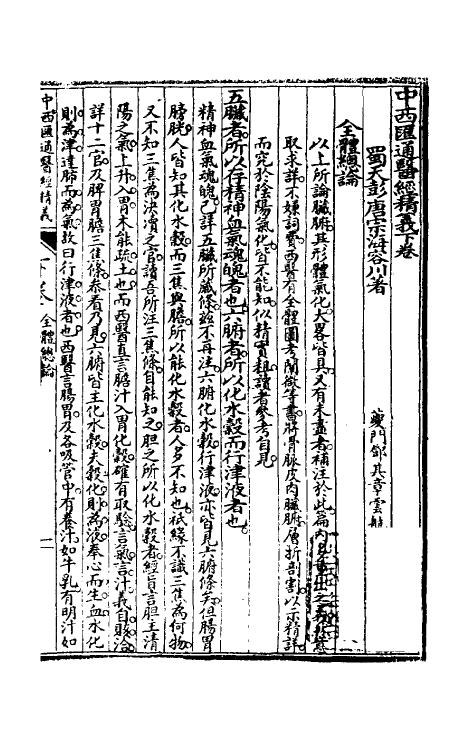 中西匯通醫經精義下卷
蜀天彭唐宗海容川著
夔門鄧其章雲航
全體總論
以上所論臟腑其形體氣化大畧皆具又有未盡者補注於此篇內
取求詳不嫌詞費西醫有全體圖考闡微等書將骨脈皮肉臟腑層折剖割以示精詳
而究於陰陽氣化皆不能知似精實粗讀者參考自見
五臟者所以存精神血氣魂魄者也六腑者所以化水穀而行津液者也
精神血氣魂魄已詳五臟所藏條茲不再注六腑化水穀行津液亦皆見六腑條矣但腸胃
膀胱人皆知其化水穀而三焦與膽所以能化水穀者人多不知也祇緣不識三焦為何物
又不知三焦為決瀆之官讀吾所注三焦條自能知之胆之所以化水穀者經旨言胆主清
陽之氣上升入胃木能疏土也而西醫直言膽汁入胃化穀確有取驗言氣言汁義自賅洽
詳十二官及脾胃膽三焦條參看乃見六腑皆主化水穀夫穀化則為液奉心而生血水化
則為津達肺而為氣故曰行津液者也西醫言腸胃及各吸管中有養汁如牛乳有明汁如
中西匯通醫經精義
下卷 全體總論
一